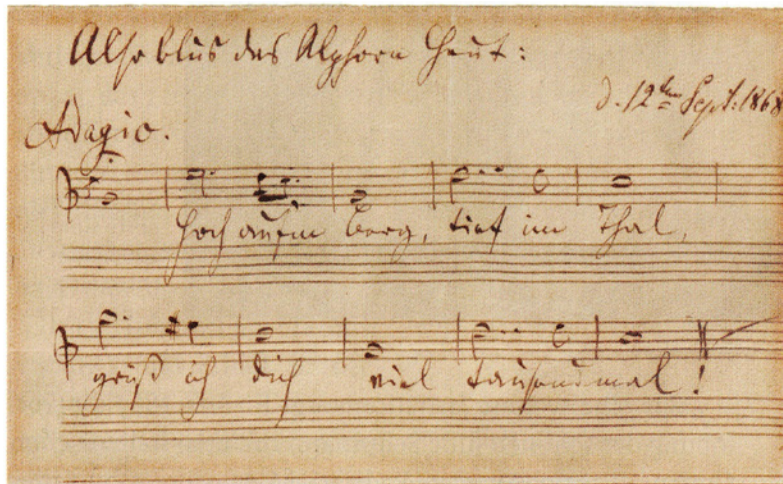 Also blus das Alphorn heut:
d. 12ten Sept: 1868
Adagio.
Hoch aufm Berg, tief im Thal,
grüß ich dich viel tausendmal!